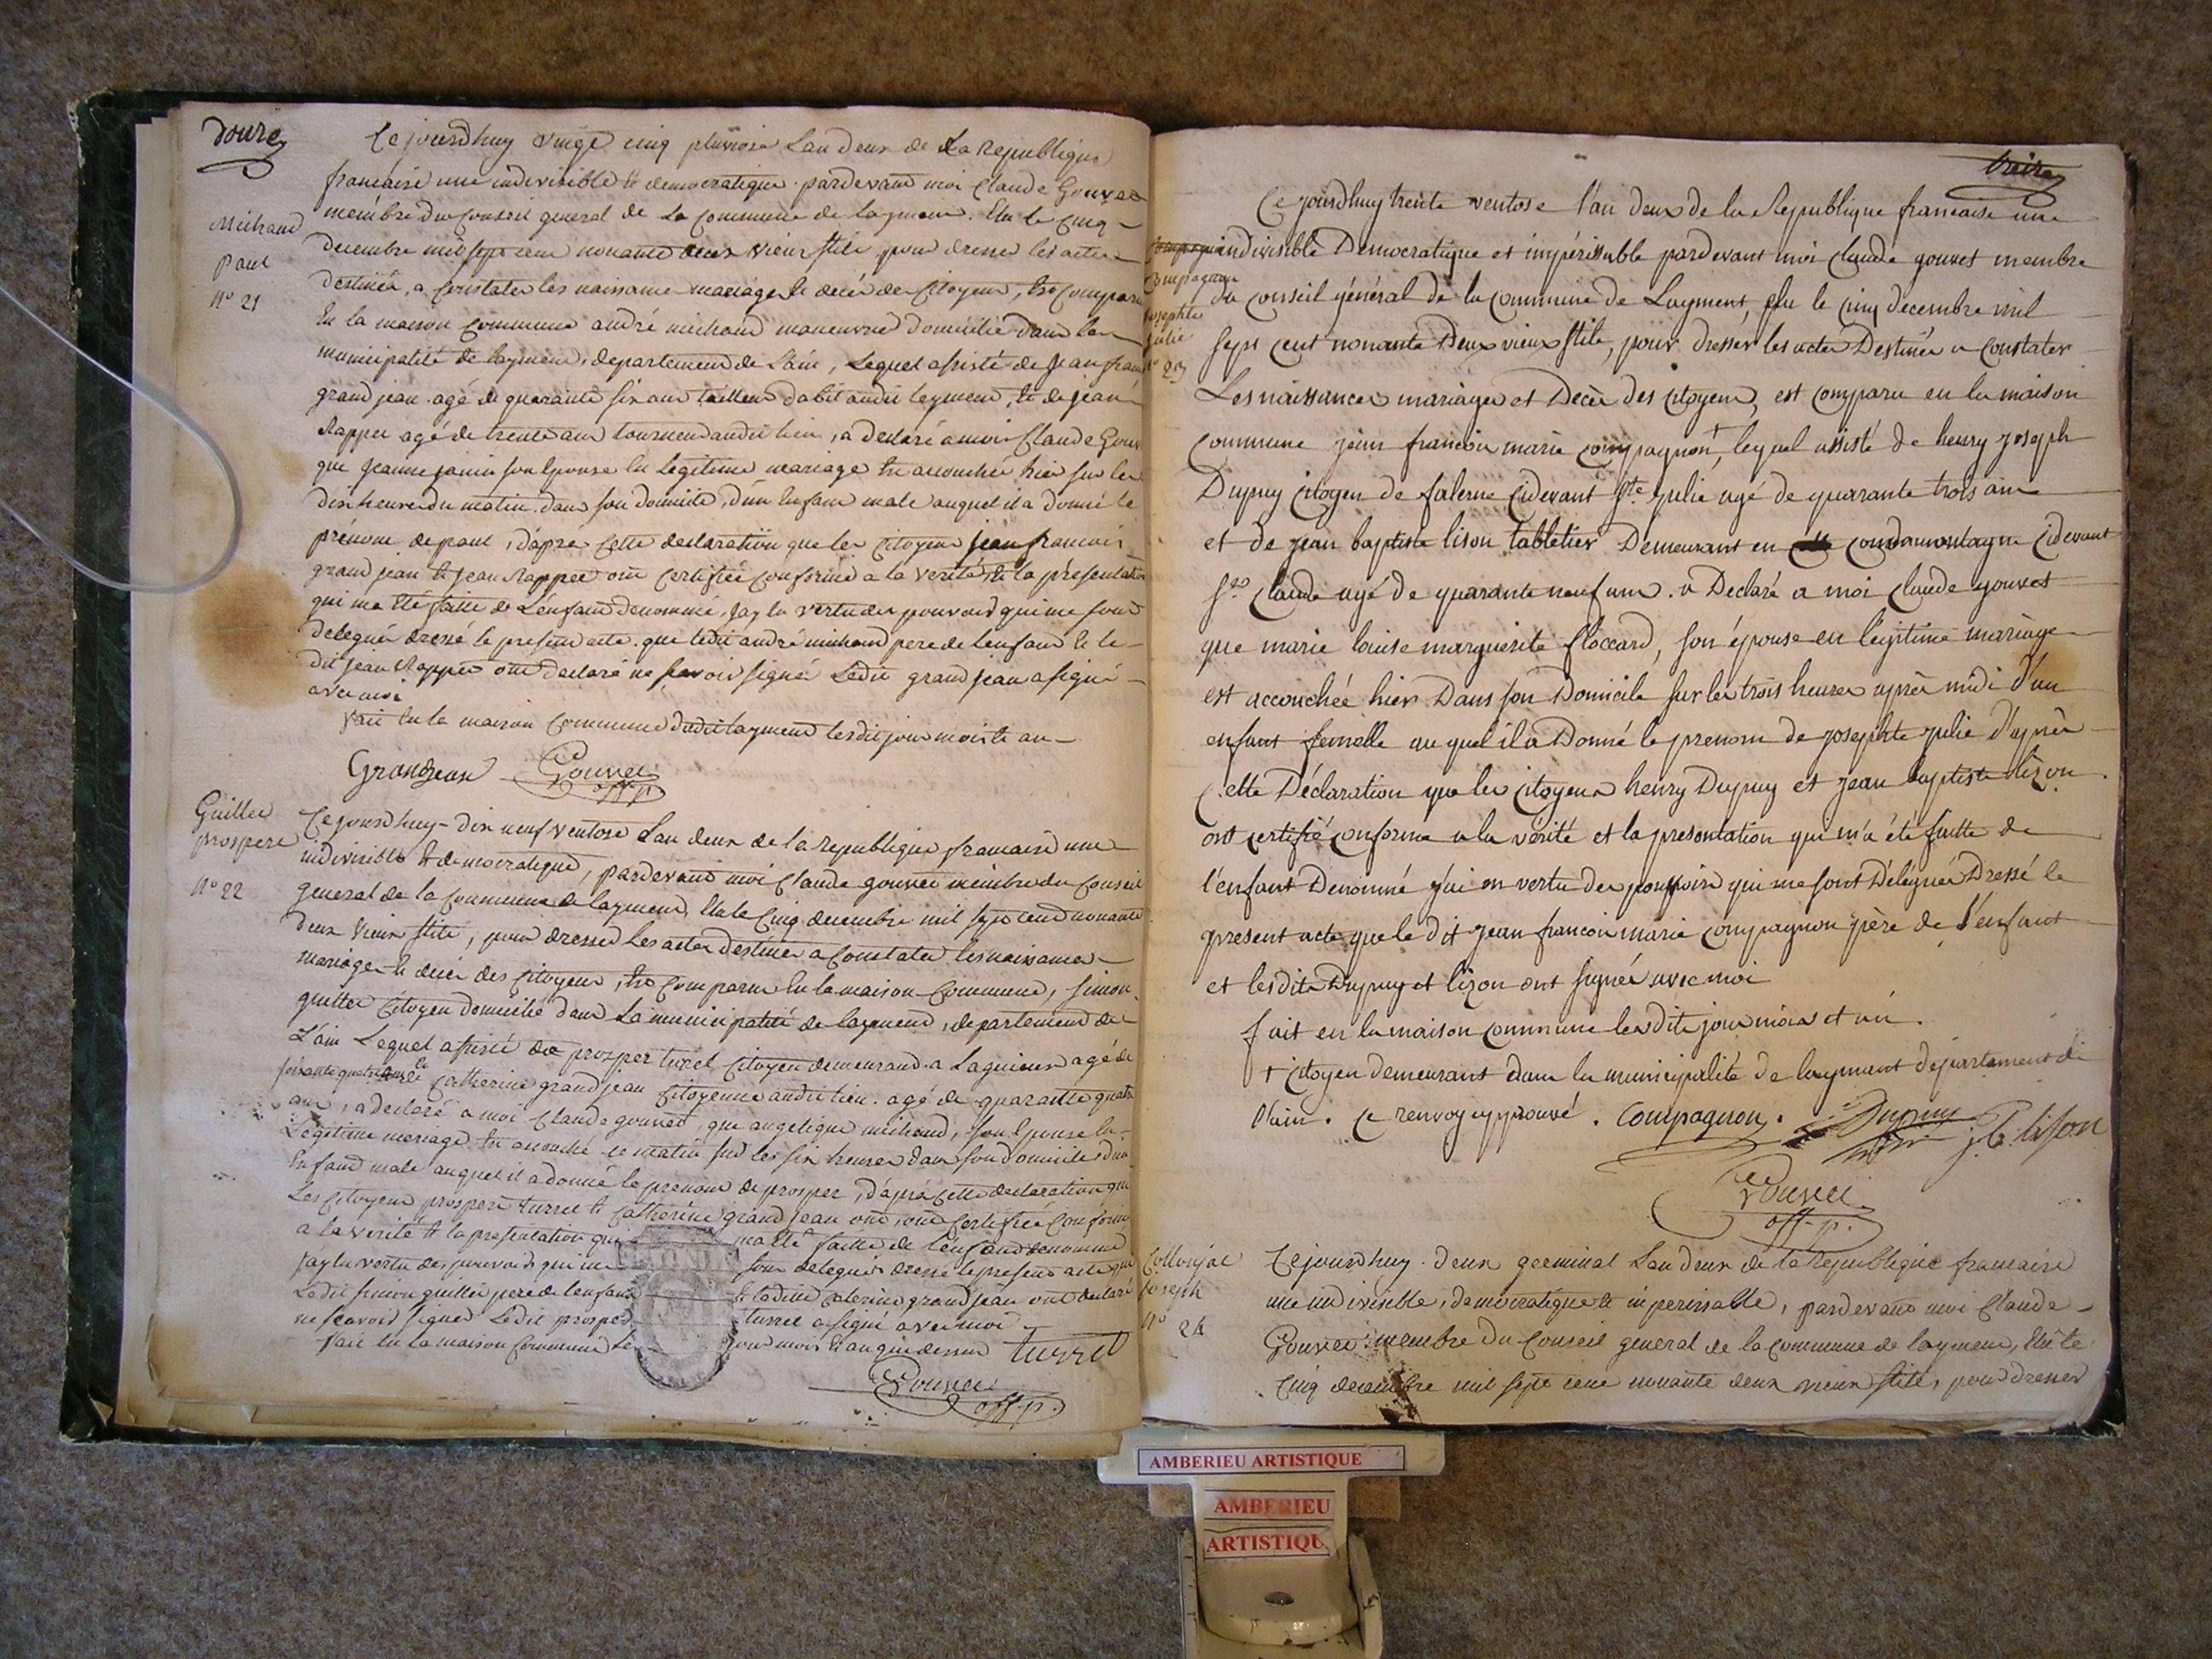 douze
Ce jourdhuy vingt cinq pluviose Lan deux de La Republique
francaise une indivisible & democratique pardevant moi Claude Gouvet
membre du Conseil general de La Commune de Laymen. Elu le cinq
decembre mil sept cent nonante deux vieux stile pour dresser les actes
destinés a Constater les naissance mariage & decés des Citoyens, est comparu
En la maison Commune andré michaud manoeuvre domicilié dans la
municipalité de laymen, departement de L'ain, Lequel assisté de Jean fran
grand jean agé de quarante six ans tailleur dabit audit leymen, & de jean
Rappet agé de trente ans audit lieu, a declaré a moi Claude Gouv
que jeanne janin son Epouse En Legitime mariage est accouchée hier sur les
dix heures du matin, dans son domicile, d'un Enfant male auquel il a donné le
prénom de paul, d'aprés Cette declaration que les Citoyens jean francois
grand jean & Jean Rappet ont Certifiée Conforme a la verité & la présentation
qui ma Eté faitte de L'enfant denommé, Jay En vertu des pouvoirs qui me sont
delegués dressé le present acte. que ledit andré michaud pere de lenfant & le
dit jean Rappet ont declaré ne scavoir signé Ledit grand jean a signé
avec moi
fait En la maison Commune dudit laymen lesdits jour mois & an
Grandjean Gouvet
off. p.
Michaud
paul
N° 21
Guillet
prospere
N° 22
Ce jourdhuy dix neuf ventose Lan deux de la republique francaise une
indivisible & democratique, pardevant moi Claude gouvet membre du Conseil
general de la Commune de laymen, Elu le Cinq decembre mil sept cent nonante
deux vieux stile, pour dresser Les actes destinés a Constater les naissances
mariage & decés des Citoyens, est Comparu En la maison Commune, simon
guillet Citoyen domicilié dans La municipalité de laymen, departement de
L'ain Lequel assisté de prosper turrel Citoyen demeurand a Lagnieu agé de
soixante quatre ans & Catherine grand jean Citoyenne audit lieu. agé de quarante quatre
ans, a declaré a moi Claude gouvet, que angelique michaud, son Epouse En
Legitime mariage est accouché ce matin sur les six heures dans son domicile d'un
Enfant male auquel il a donné le prenom de prosper, d'aprés Cette declaration que
Les Citoyens prospere turrel & Catherine grand jean ont Certifiée Conforme
a la verité & la presentation qui ma Eté faitte de l'enfant denommé
Jay En vertu des pouvoirs qui me sont delegués dressé le present acte que
Ledit simon guillet pere de lenfant & ladite Caterine grand jean ont declaré
ne scavoir signer Ledit prosper turrel a signé avec moi
fait En la maison Commune Les jour mois & an que dessus turrel
Gouvet
off. p.
treize
Ce jourdhuy trente ventose l'an deux de la Republique francaise une
indivisible Democratique et impérissable pardevant moi claude gouvet membre
du conseil général de la commune de Layment, élu le cinq decembre mil
sept cent nonante Deux vieux stile, pour dresser les actes Destinés a constater
Les naissances mariages et Decès des citoyens, est comparu en la maison
commune jean francois marie compagnon +, lequel assisté de henry joseph
Dupuy citoyen de falerne cidevant Ste julie agé de quarante trois ans
et de jean baptiste lison tabletier Demeurant en condamontagne cidevant
St claude agé de quarante neuf ans. a Declaré a moi claude gouvet
que marie louise marguerite floccard, son épouse en légitime mariage
est accouchée hier Dans son Domicile sur les trois heures après midi d'un
enfant femelle au quel il a Donné le prenom de josephte julie d'après
cette Déclaration que les citoyens henry Dupuy et jean baptiste lizon
ont certifié conforme a la vérité et la presentation qui m'a été faitte de
l'enfant Denommé j'ai en vertu des pouvoirs qui me sont Délégués Dressé le
présent acte que le dit jean francois marie compagnon père de l'enfant
et lesdits Dupuy et lizon ont signés avec moi
fait en la maison commune lesdits jour mois et an.
+ citoyen demeurant dans la municipalité de layment département de
l'ain. ce renvoy approuvé. Compagnon. Dupuy J. B. lison
Gouvet
off. p.
Compagnon
josephte
julie
n° 23
Collovrjat
joseph
N° 24
Ce jourdhuy deux germinal Lan deux de la Republique francaise
une indivisible, democratique & imperissable, pardevant moi Claude
Gouvet membre du Conseil general de la Commune de laymen, Elu le
Cinq decembre mil sept cent nonante deux vieux stile, pour dresser
AMBERIEU ARTISTIQUE
AMBERIEU
ARTISTIQU